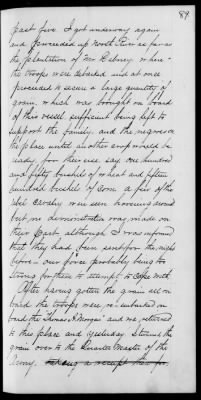 89.
past five. I got underway again
and proceeded up North River as far as
the plantation of Mr Dabney where
the troops were debarked and at once
proceeded to secure a large quantity of
grain, which was brought on board
of this vessel sufficient being left to
support the family, and the negroes on
the place until another crop would be
ready, for their use say one hundred
and fifty bushels of wheat and fifteen
hundred bushels of corn a few of the
rebel cavalry were seen hovering around
but no demonstration was made on
their part although I was informed
that they had been sent for the night
before - our force probably being too
strong for them to attempt to cope with.
After having gotten the grain all on
board the troops were re-embarked on
board the "Thomas A Morgan" and we returned
to this place and yesterday I turned the
grain over to the Quarter Master of the
Army. taking a receipt therefor.